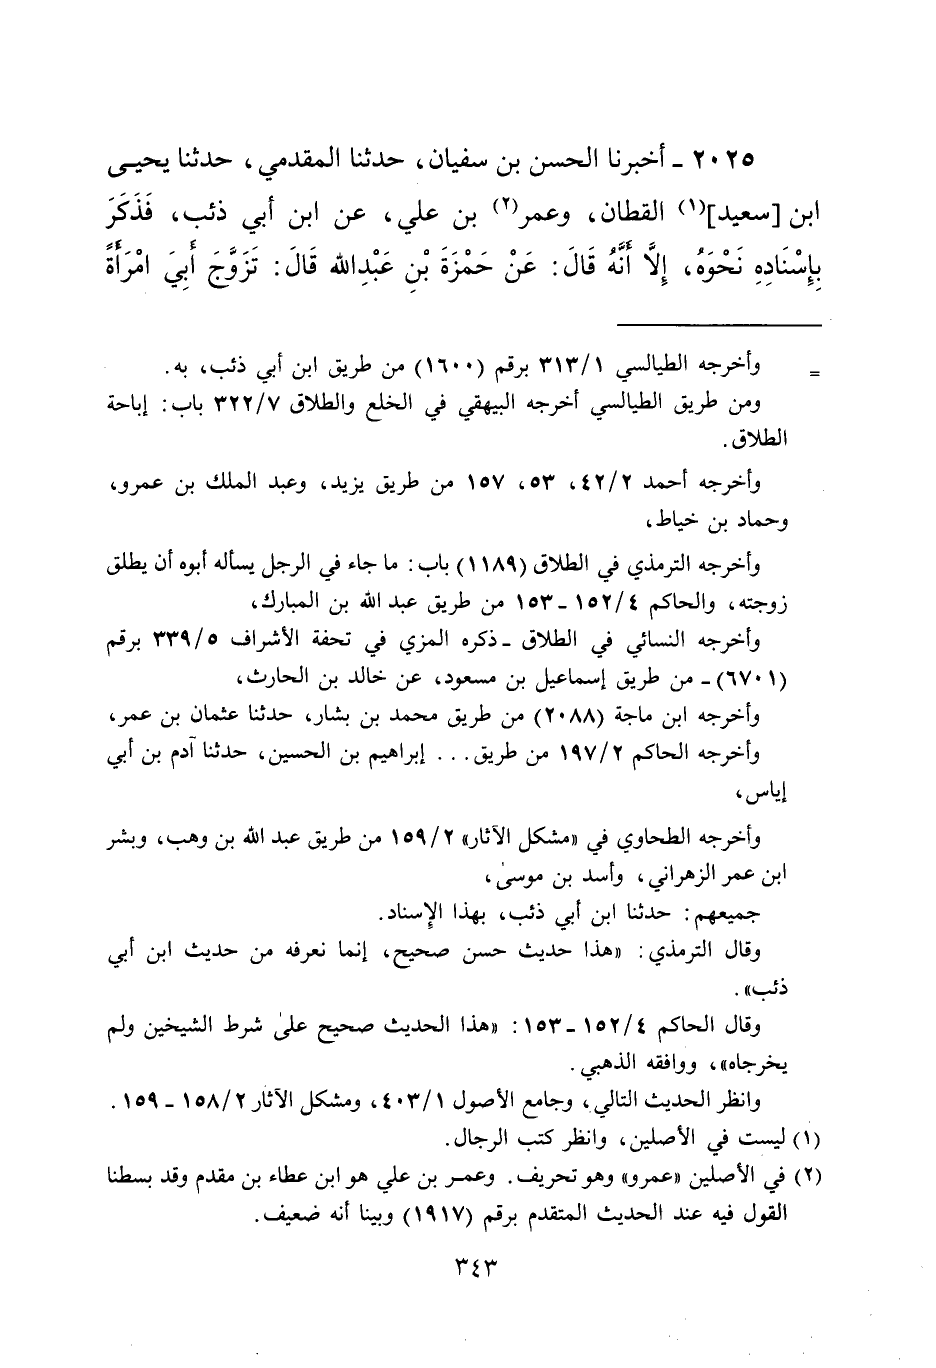 ٢٠٢٥ - أخبرنا الحسن بن سفيان، حدثنا المقدمي، حدثنا يحيى
ابن [سعيد](١) القطان، وعمر(٢) بن علي، عن ابن أبي ذئب، فَذَكَرَ
بِإِسْنَادِهِ نَحْوَهُ، إِلَّا أَنَّهُ قَالَ: عَنْ حَمْزَةَ بْنِ عَبْدِالله قَالَ: تَزَوَّجَ أَبِيَ امْرَأَةً
= وأخرجه الطيالسي ٣١٣/١ برقم (١٦٠٠) من طريق ابن أبي ذئب، به.
ومن طريق الطيالسي أخرجه البيهقي في الخلع والطلاق ٣٢٢/٧ باب: إباحة
الطلاق.
وأخرجه أحمد ٤٢/٢، ٥٣، ١٥٧ من طريق يزيد، وعبد الملك بن عمرو،
وحماد بن خياط،
وأخرجه الترمذي في الطلاق (١١٨٩) باب: ما جاء في الرجل يسأله أبوه أن يطلق
زوجته، والحاكم ١٥٢/٤ - ١٥٣ من طريق عبد الله بن المبارك،
وأخرجه النسائي في الطلاق - ذكره المزي في تحفة الأشراف ٣٣٩/٥ برقم
(٦٧٠١) - من طريق إسماعيل بن مسعود، عن خالد بن الحارث،
وأخرجه ابن ماجة (٢٠٨٨) من طريق محمد بن بشار، حدثنا عثمان بن عمر،
وأخرجه الحاكم ١٩٧/٢ من طريق... إبراهيم بن الحسين، حدثنا آدم بن أبي
إياس،
وأخرجه الطحاوي في «مشكل الآثار» ١٥٩/٢ من طريق عبد الله بن وهب، وبشر
ابن عمر الزهراني، وأسد بن موسىٰ،
جميعهم: حدثنا ابن أبي ذئب، بهذا الإسناد.
وقال الترمذي: «هذا حديث حسن صحيح، إنما نعرفه من حديث ابن أبي
ذئب».
وقال الحاكم ١٥٢/٤ - ١٥٣: «هذا الحديث صحيح علىٰ شرط الشيخين ولم
يخرجاه»، ووافقه الذهبي.
وانظر الحديث التالي، وجامع الأصول ٤٠٣/١، ومشكل الآثار ١٥٨/٢ - ١٥٩.
(١) ليست في الأصلين، وانظر كتب الرجال.
(٢) في الأصلين «عمرو» وهو تحريف. وعمر بن علي هو ابن عطاء بن مقدم وقد بسطنا
القول فيه عند الحديث المتقدم برقم (١٩١٧) وبينا أنه ضعيف.
٣٤٣